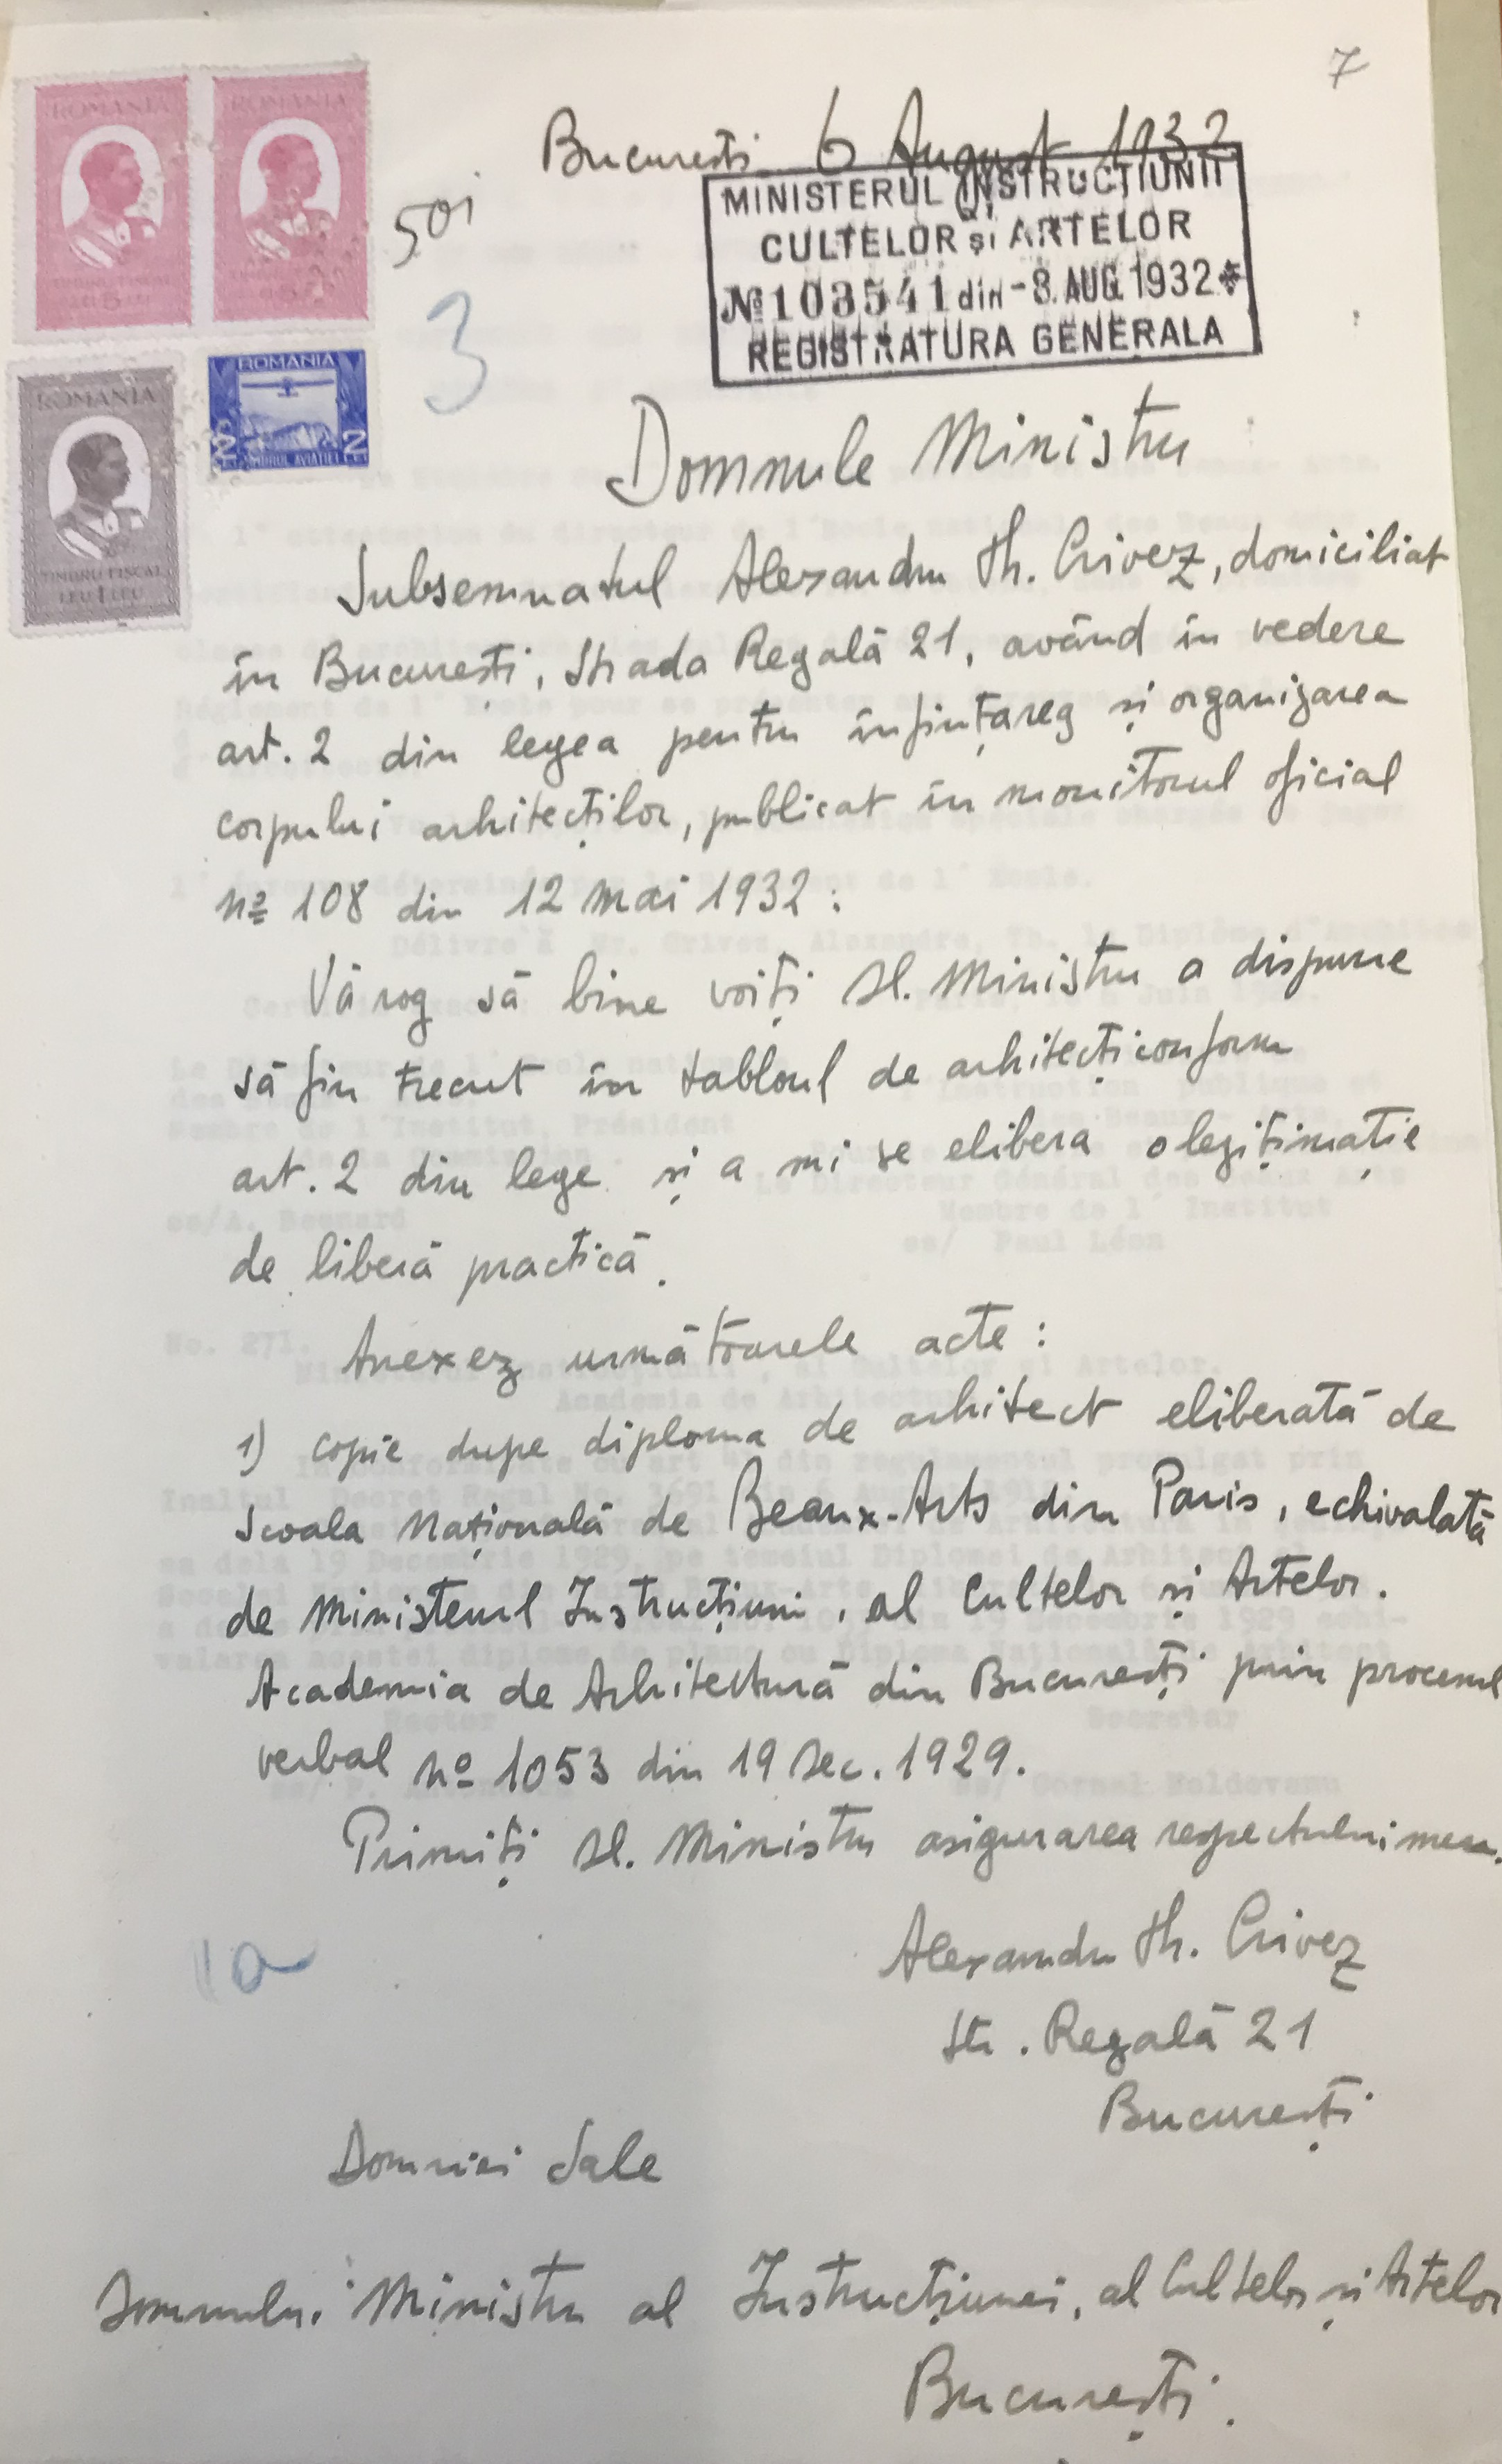 7
București 6 August 1932
501
3
MINISTERUL INSTRUCȚIUNII
CULTELOR și ARTELOR
№ 103541 din -8. AUG. 1932
REGISTRATURA GENERALA
ROMANIA
ROMANIA
TIMBRU FISCAL
ROMANIA
2 2
TIMBRUL AVIAȚIEI
ROMANIA
TIMBRU FISCAL
LEU 1 LEU
Domnule Ministru
Subsemnatul Alexandru Th. Crivez, domiciliat
în București, Strada Regală 21, având în vedere
art. 2 din legea pentru înființarea și organizarea
corpului arhitecților, publicat în monitorul oficial
nº 108 din 12 Mai 1932 :
Vă rog să bine voiți Dl. Ministru a dispune
să fiu trecut în tabloul de arhitecți conform
art. 2 din lege și a mi se elibera o legițimație
de liberă practică.
Anexez următoarele acte :
1) copie dupe diploma de arhitect eliberată de
Scoala Națională de Beaux-Arts din Paris, echivalată
de Ministerul Instrucțiuni, al Cultelor și Artelor.
Academia de Arhitectură din București prin procesul
verbal nº 1053 din 19 Dec. 1929.
Primiți Dl. Ministru asigurarea respectului meu.
Alexandru Th. Crivez
Str. Regală 21
București
Domniei Sale
Domnului Ministru al Instrucțiunei, al Cultelor și Artelor
București.